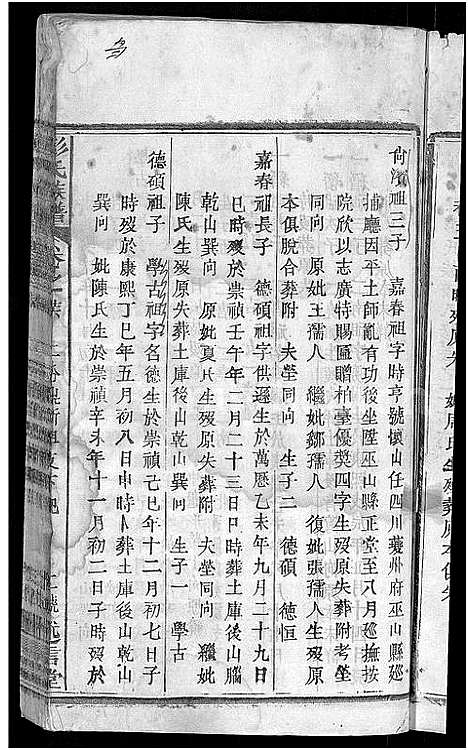 尚濱祖三子　嘉春祖字時亨號懷山任四川夔州府巫山縣廵
捕廳因平土師亂有功後坐陞巫山縣正堂至八月廵撫按
院欣以志廣特賜匾贈柏臺優獎四字生歿原失葬附考塋
同向　原妣王孺人　繼妣鄒孺人　復妣張孺人生歿原
本俱脫合葬附　夫塋同向　生子二　德碩　德恒
嘉春祖長子　德碩祖字供遜生於萬曆乙未年九月二十九日
巳時歿於崇禎壬午年二月二十三日巳時葬土庫後山腦
乾山巽向　原妣夏氏生歿原失葬附　夫塋同向　繼妣
陳氏生歿原失葬土庫後山乾山巽向　生子一　學古
德碩祖子　學古祖字名德生於崇禎己巳年十二月初七日子
時歿於康熙丁巳年五月初八日申時卜葬土庫後山乾山
巽向　妣陳氏生於崇禎辛未年十一月初二日子時歿於
彭氏族譜